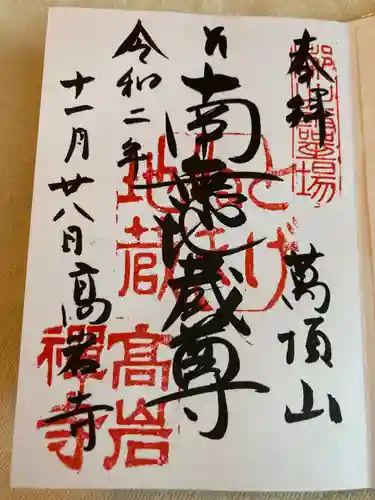 奉拝
萬頂山
南無地蔵尊
令和二年
十一月廿八日
高岩寺
霊場
とげぬき
地蔵
高岩
禅寺